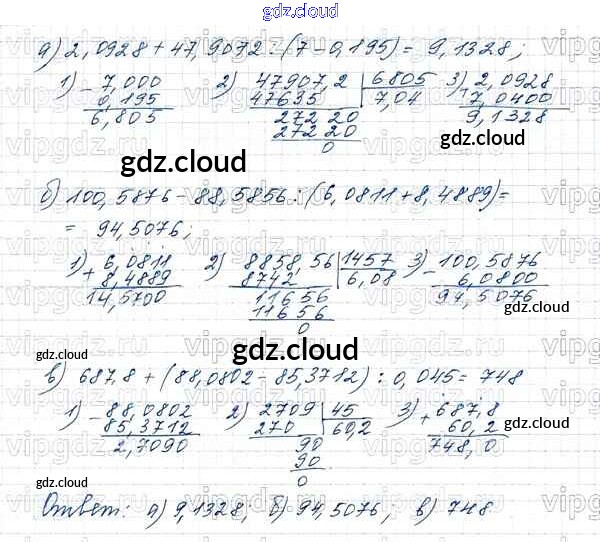 gdz.cloud
gdz.cloud
а) 2,0928 + 47,9072 : (7 - 0,195) = 9,1328;
1) - 7,000 2) 47907,2 | 6805 3) + 2,0928
0,195 47635 7,04 7,0400
6,805 27220 9,1328
27220
0
gdz.cloud gdz.cloud
б) 100,5876 - 88,5856 : (6,0811 + 8,4889) =
= 94,5076;
1) + 6,0811 2) 8858,56 | 1457 3) - 100,5876
8,4889 8742 6,08 6,0800
14,5700 11656 94,5076
11656
0
gdz.cloud
gdz.cloud gdz.cloud
в) 687,8 + (88,0802 - 85,3712) : 0,045 = 748
1) - 88,0802 2) 2709 | 45 3) + 687,8
85,3712 270 60,2 60,2
2,7090 90 748,0
90
0
gdz.cloud gdz.cloud
Ответ: а) 9,1328; б) 94,5076, в) 748
gdz.cloud